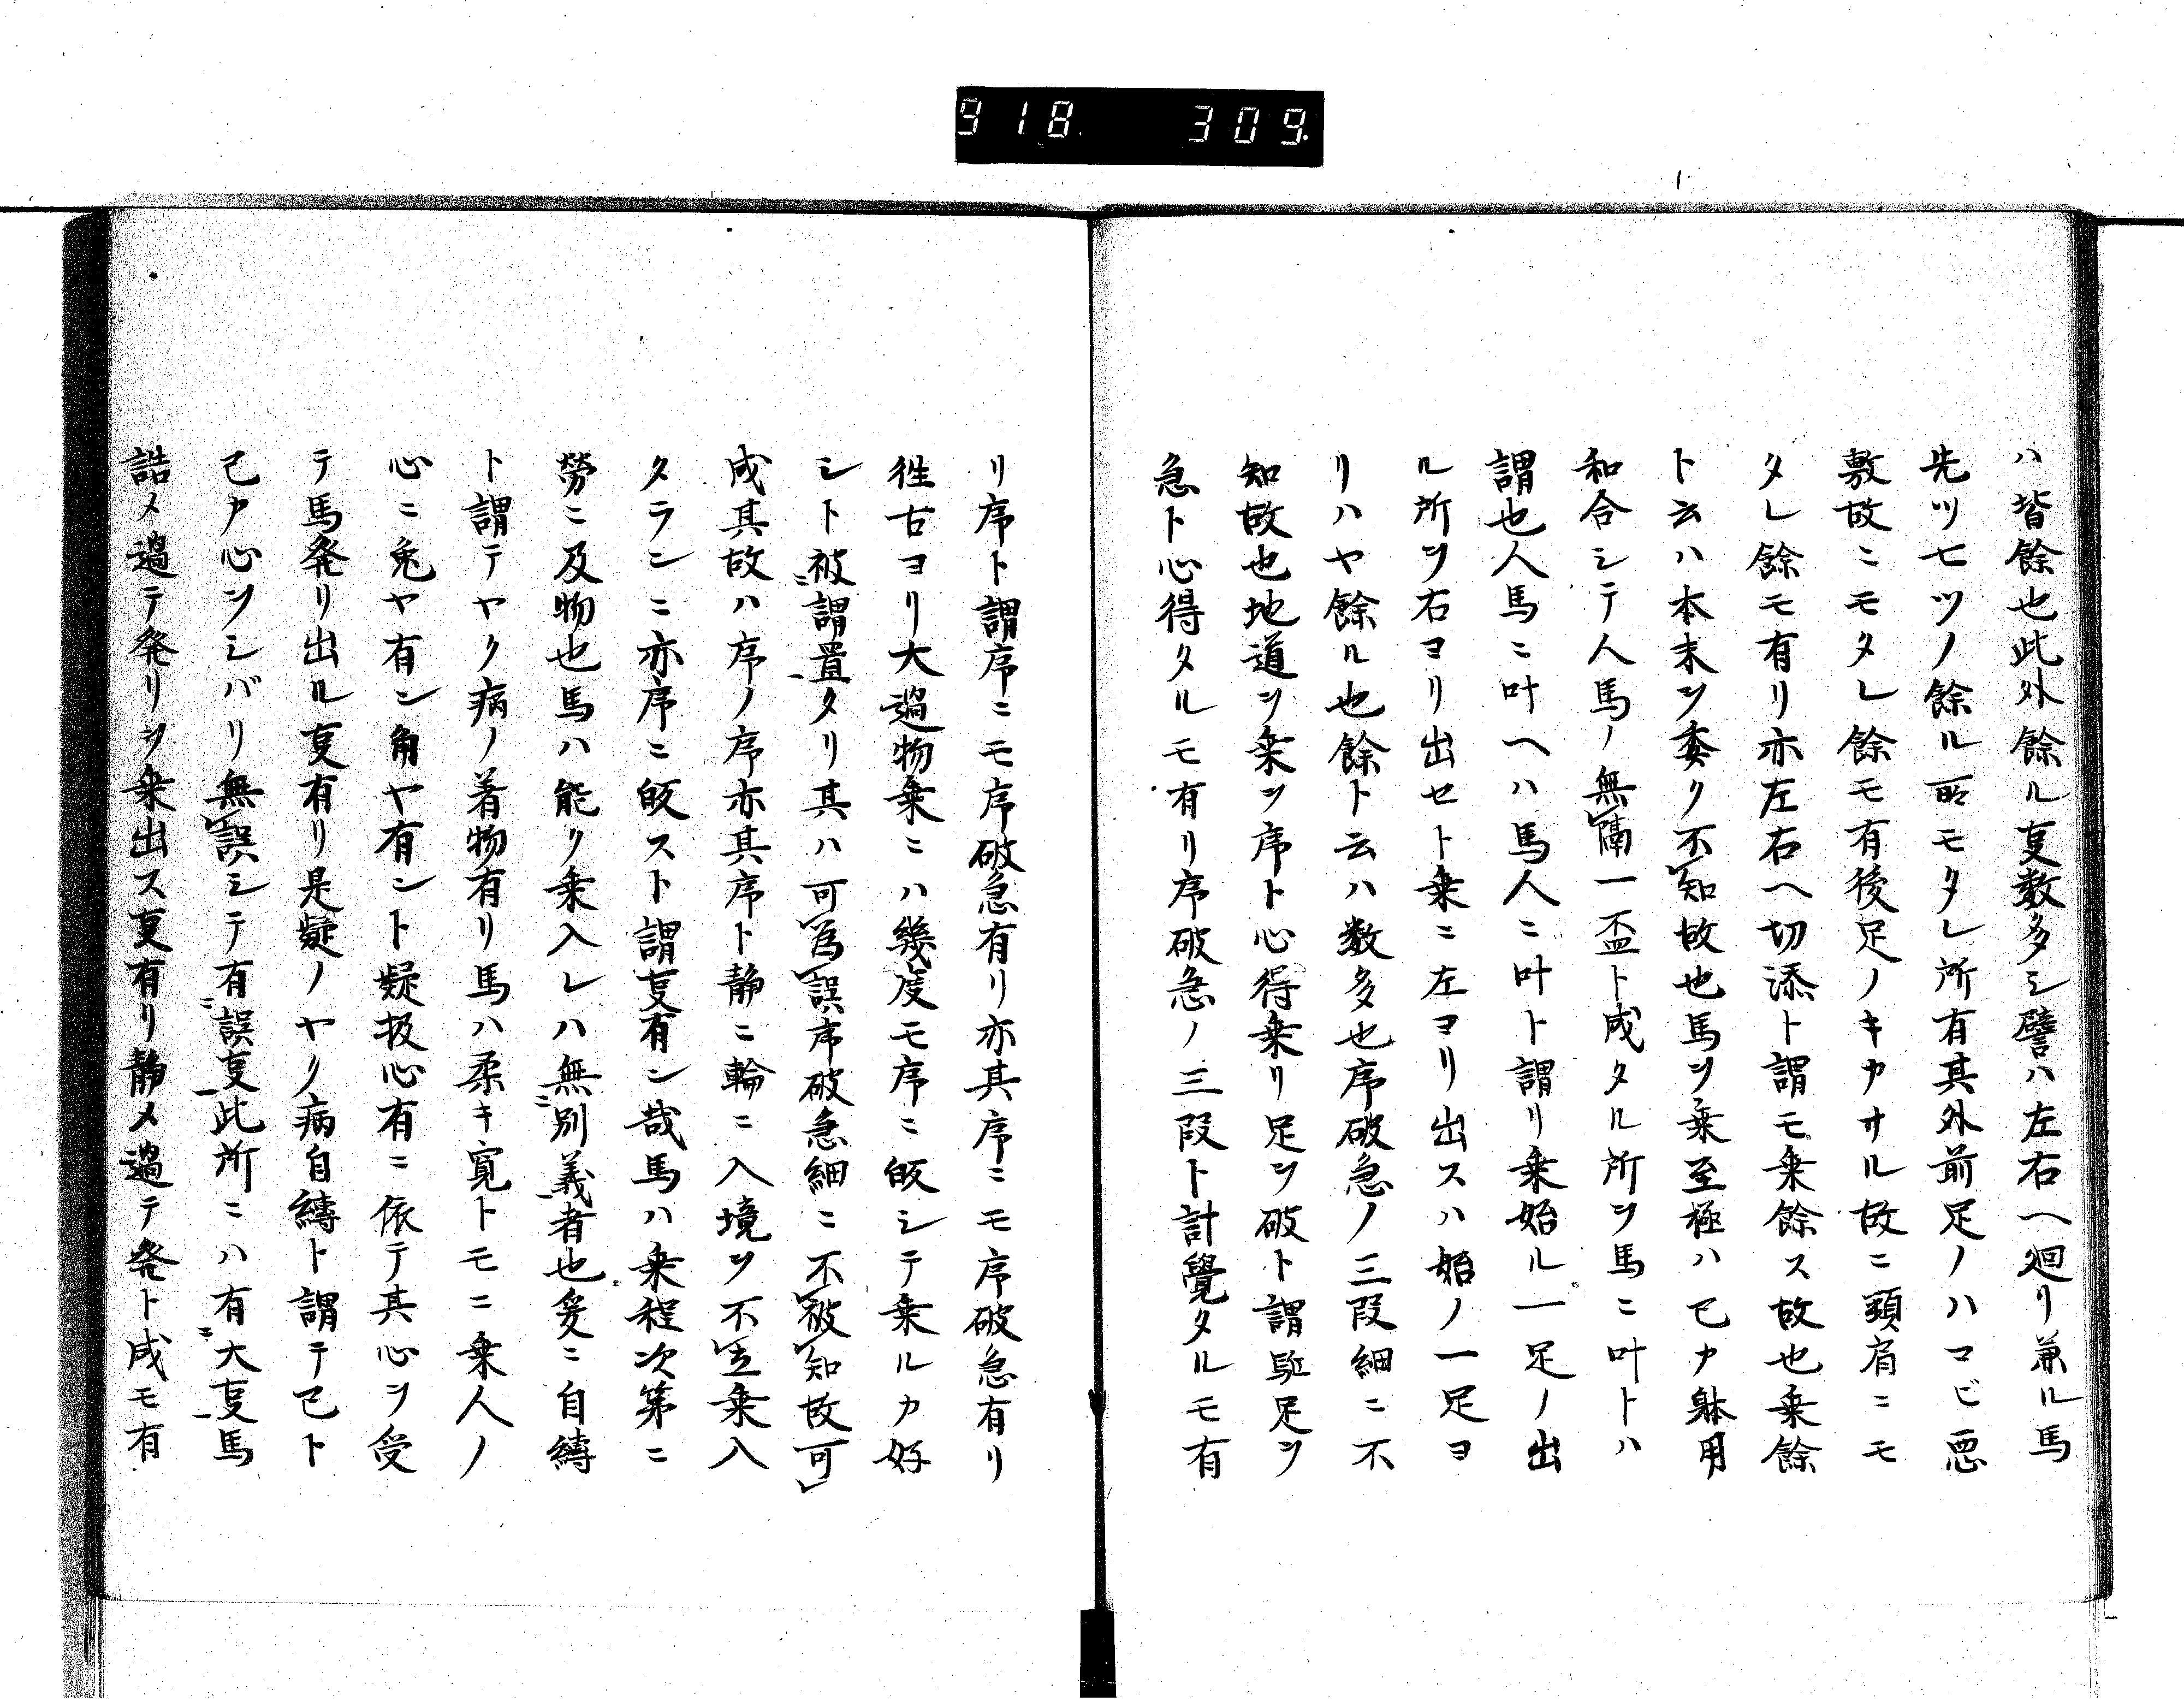 918 309
ハ皆餘也此外餘ル叓数多シ譬ハ左右ヘ廻リ兼ル馬
先ツ七ツノ餘ル所モタレ所有其外前足ノハマビ悪
敷故ニモタレ餘モ有後足ノキカサル故ニ頸肩ニモ
タレ餘モ有リ亦左右ヘ切添ト謂モ乗餘ス故也乗餘
ト云ハ本末ヲ委ク不知故也馬ヲ乗至極ハ己カ躰用
和合シテ人馬ノ無隔一盃ト成タル所ヲ馬ニ叶トハ
謂也人馬ニ叶ヘハ馬人ニ叶ト謂リ乗始ル一足ノ出
ル所ヲ右ヨリ出セト乗ニ左ヨリ出スハ始ノ一足ヨ
リハヤ餘ル也餘ト云ハ数多也序破急ノ三段細ニ不
知故也地道ヲ乗ヲ序ト心得乗リ足ヲ破ト謂駈足ヲ
急ト心得タルモ有リ序破急ノ三段ト計覺タルモ有
リ序ト謂序ニモ序破急有リ亦其序ニモ序破急有リ
徃古ヨリ大過物乗ニハ幾度モ序ニ皈シテ乗ルカ好
シト被ニ謂置一タリ其ハ可レ為レ誤序破急細ニ不レ被レ知故可レ
成其故ハ序ノ序亦其序ト静ニ輪ニ入境ヲ不レ立乗入
タランニ亦序ニ皈スト謂叓有ン哉馬ハ乗程次第ニ
勞ニ及物也馬ハ能ク乗入レハ無ニ別義一者也爰ニ自縛
ト謂テヤク病ノ着物有リ馬ハ柔キ寛トモニ乗人ノ
心ニ兎ヤ有ン角ヤ有ント疑扱心有ニ依テ其心ヲ受
テ馬発リ出ル叓有リ是疑ノヤク病自縛ト謂テ己ト
己カ心ヲシバリ無レ誤シテ有ニ誤叓一此所ニハ有ニ大叓一馬
詰メ過テ発リヲ乗出ス叓有リ静メ過テ発ト成モ有